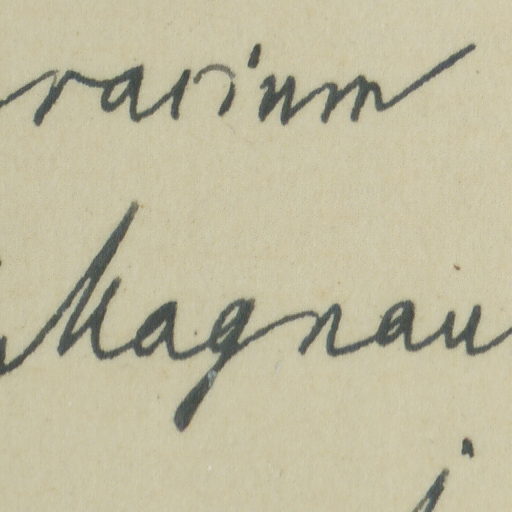 racium
Magnau